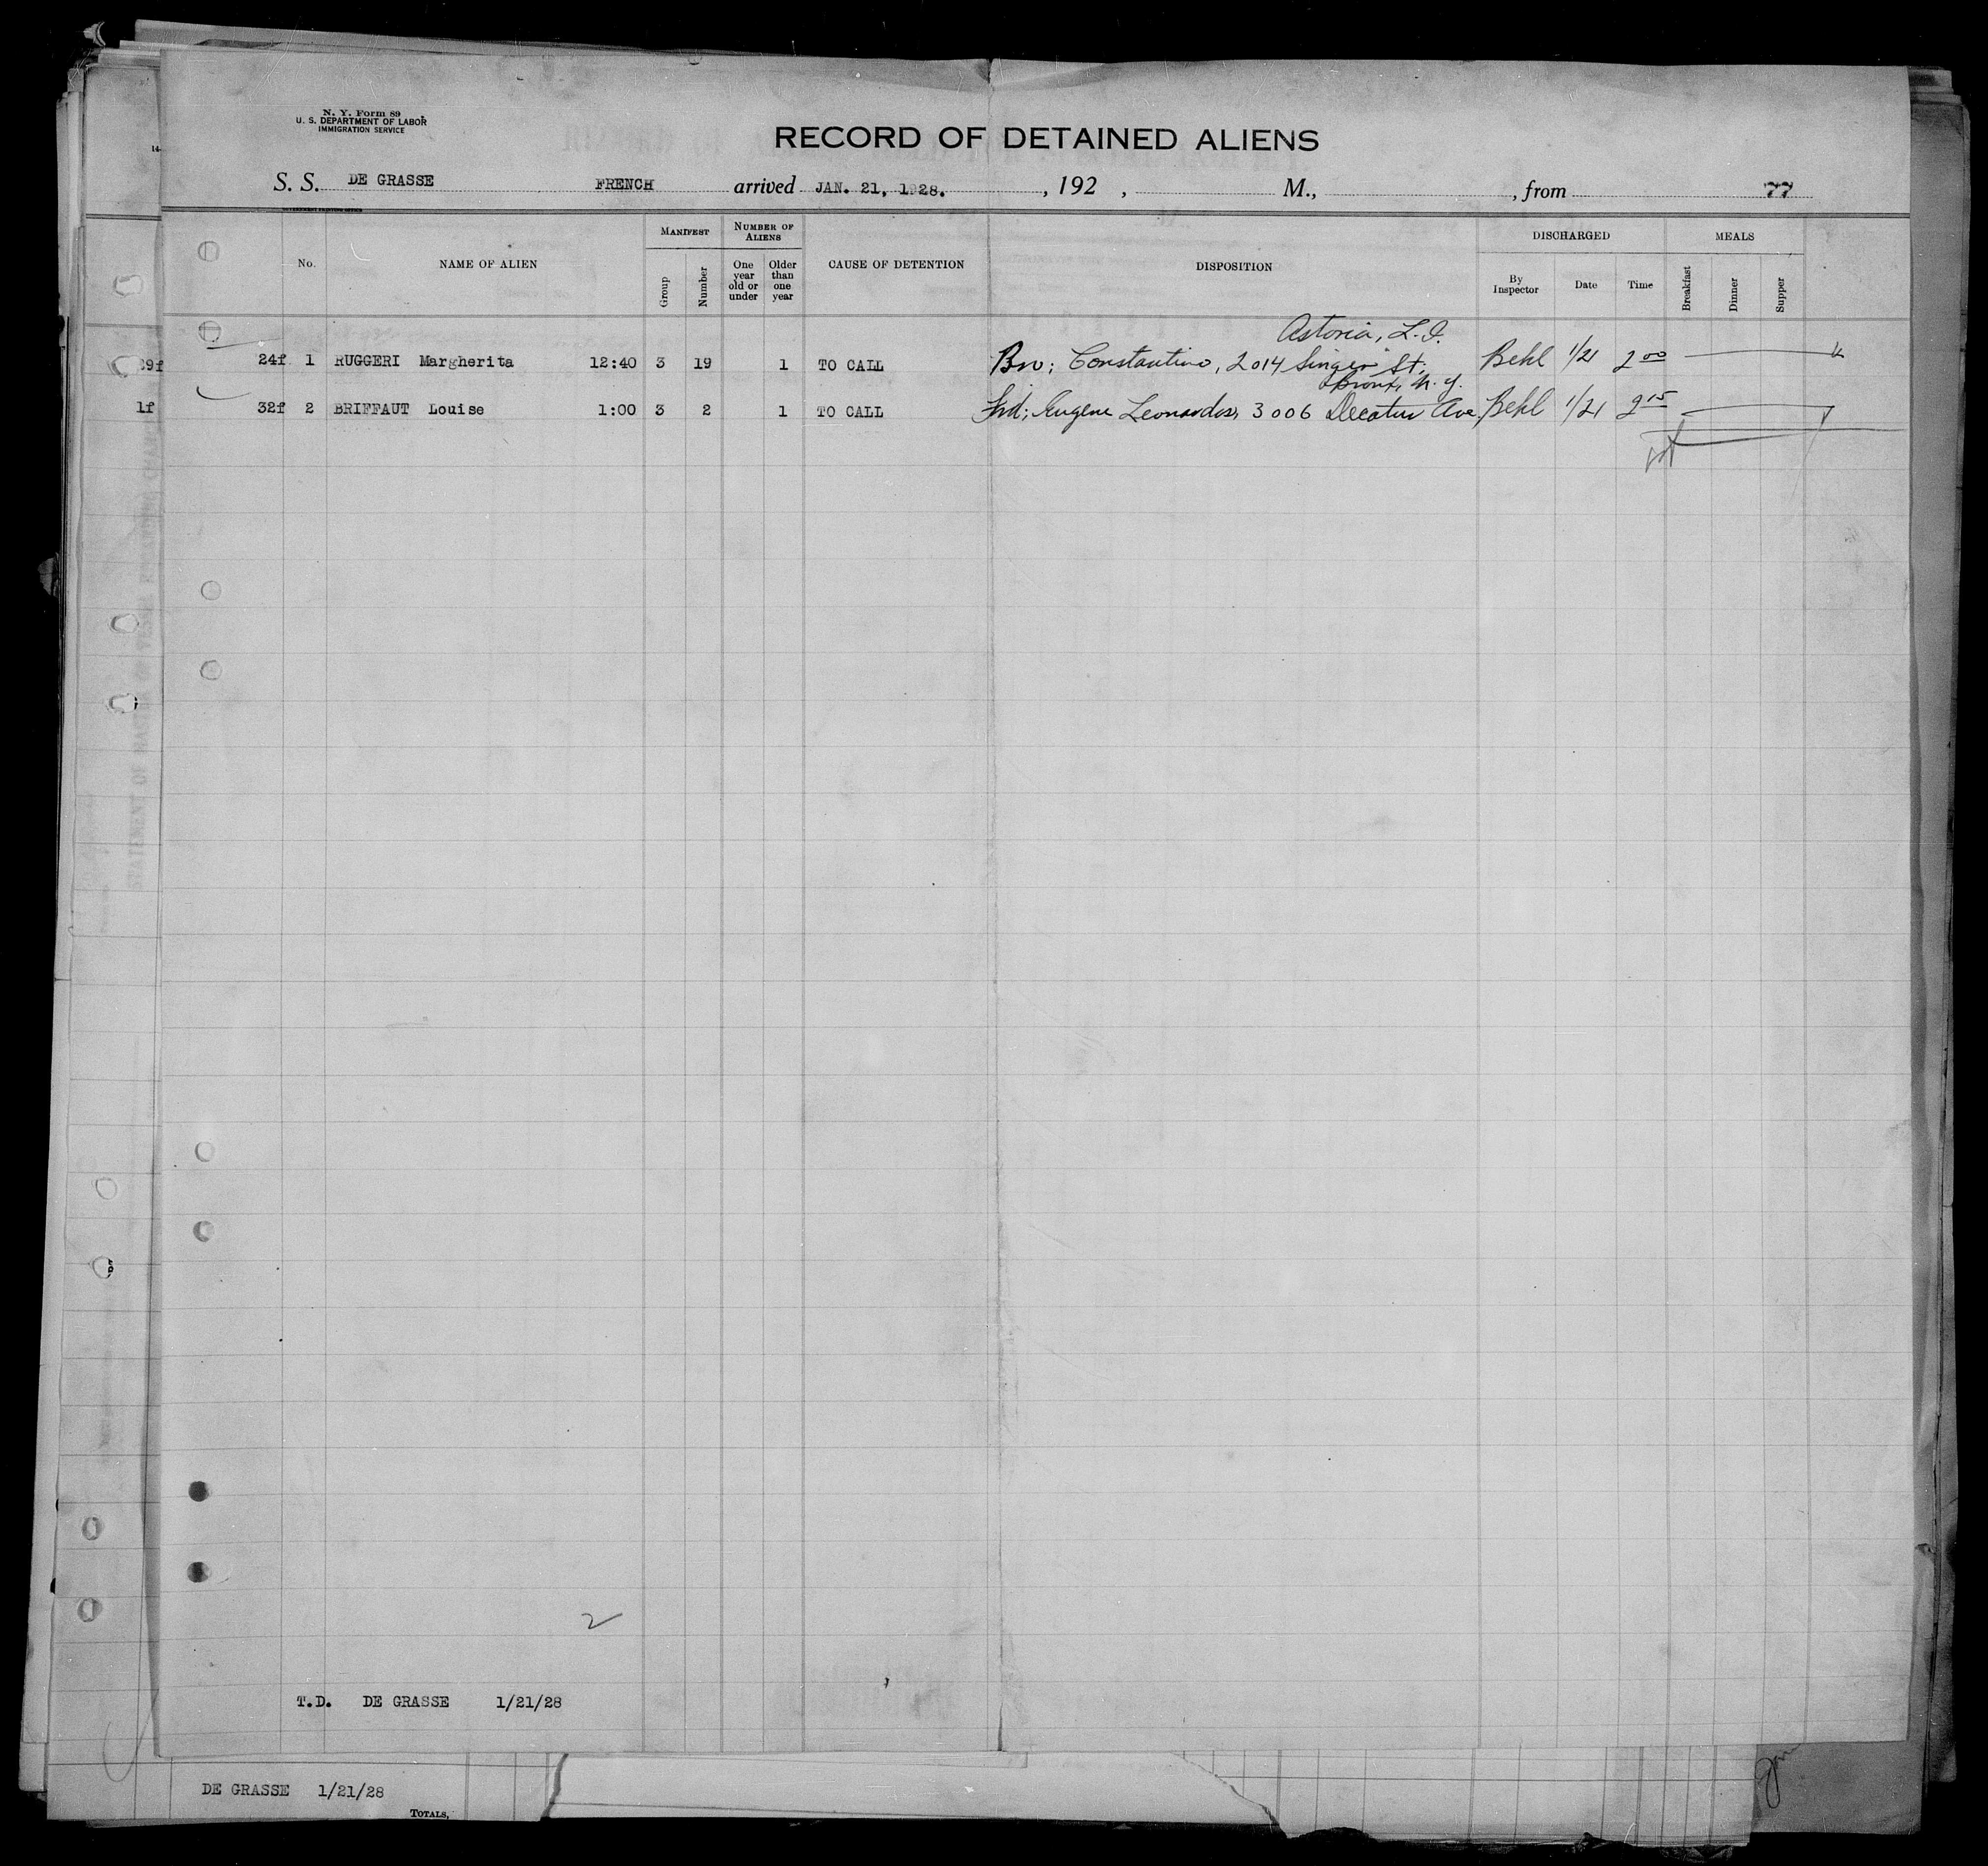 N. Y. Form 89
U. S. DEPARTMENT OF LABOR
IMMIGRATION SERVICE
RECORD OF DETAINED ALIENS
S. S. DE GRASSE FRENCH arrived JAN. 21, 1928. , 192 , M., , from 77
MANIFEST NUMBER OF ALIENS DISCHARGED MEALS
No. NAME OF ALIEN Group Number One year old or under Older than one year CAUSE OF DETENTION DISPOSITION By Inspector Date Time Breakfast Dinner Supper
Astoria, L. I.
24f 1 RUGGERI Margherita 12:40 3 19 1 TO CALL Bro; Constantino, 2014 Singer St. Behl 1/21 2 00
Bronx, N. Y.
32f 2 BRIFFAUT Louise 1:00 3 2 1 TO CALL Frd; Eugene Leonardos, 3006 Decatur Ave. Behl 1/21 2 15
1f
2
T.D. DE GRASSE 1/21/28
DE GRASSE 1/21/28
TOTALS,